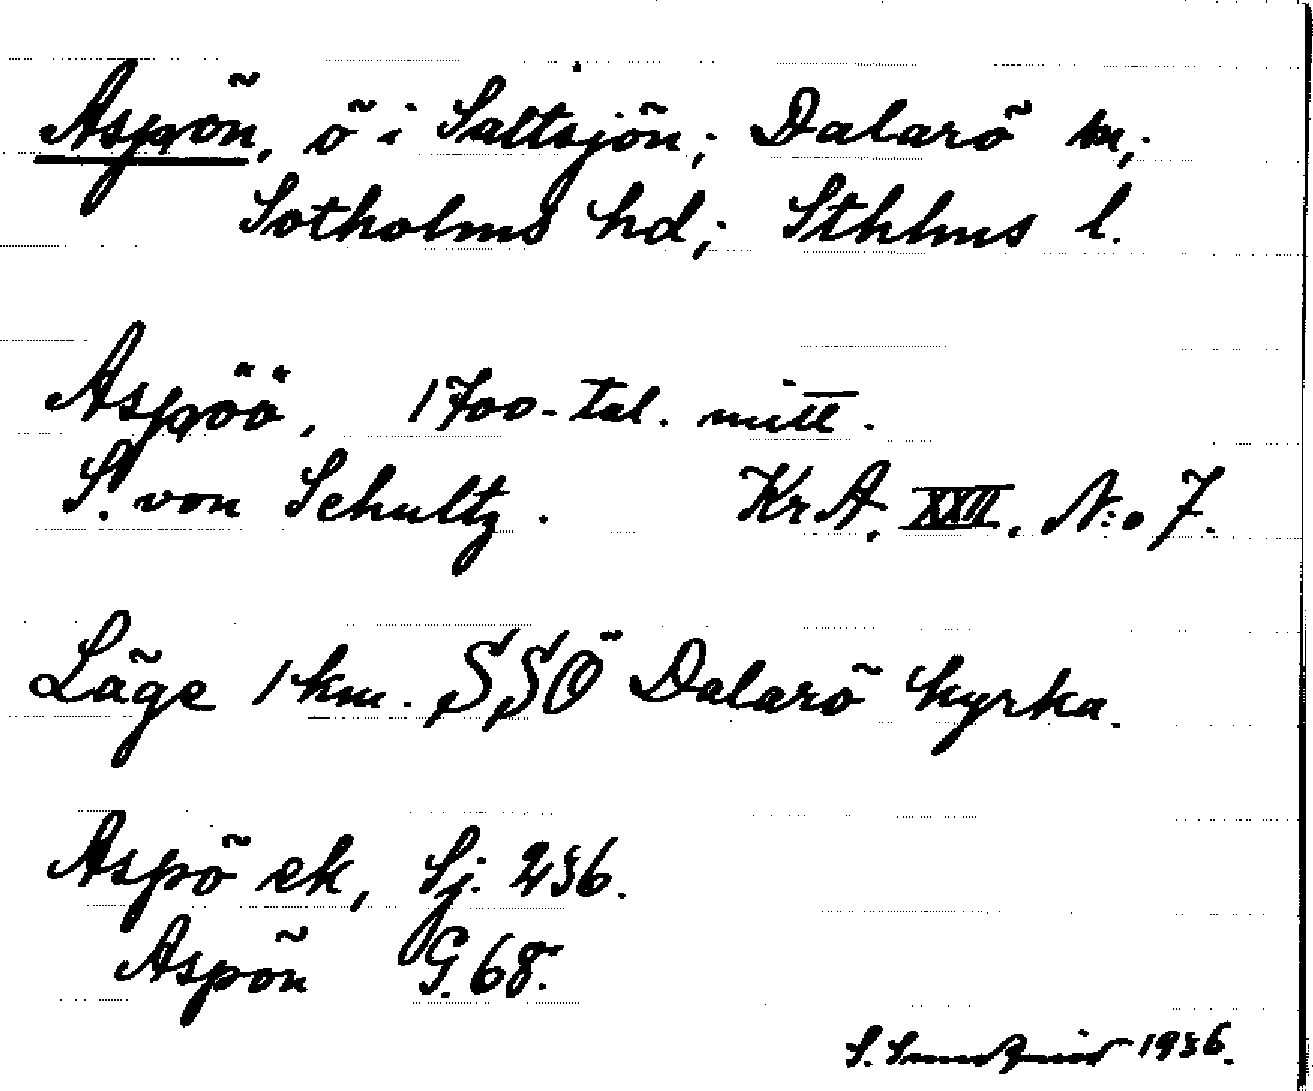 Aspön, ö i Saltsjön; Dalarö sn;
Sotholms hd; Sthlms l.
Aspöö, 1700-tal. mitt.
S. von Schultz. Kr.A. XXII. N:o 7.
Läge 1 km. SSÖ Dalarö kyrka.
Aspö ek, Sj. 236.
Aspön G. 68.
S. 1936.